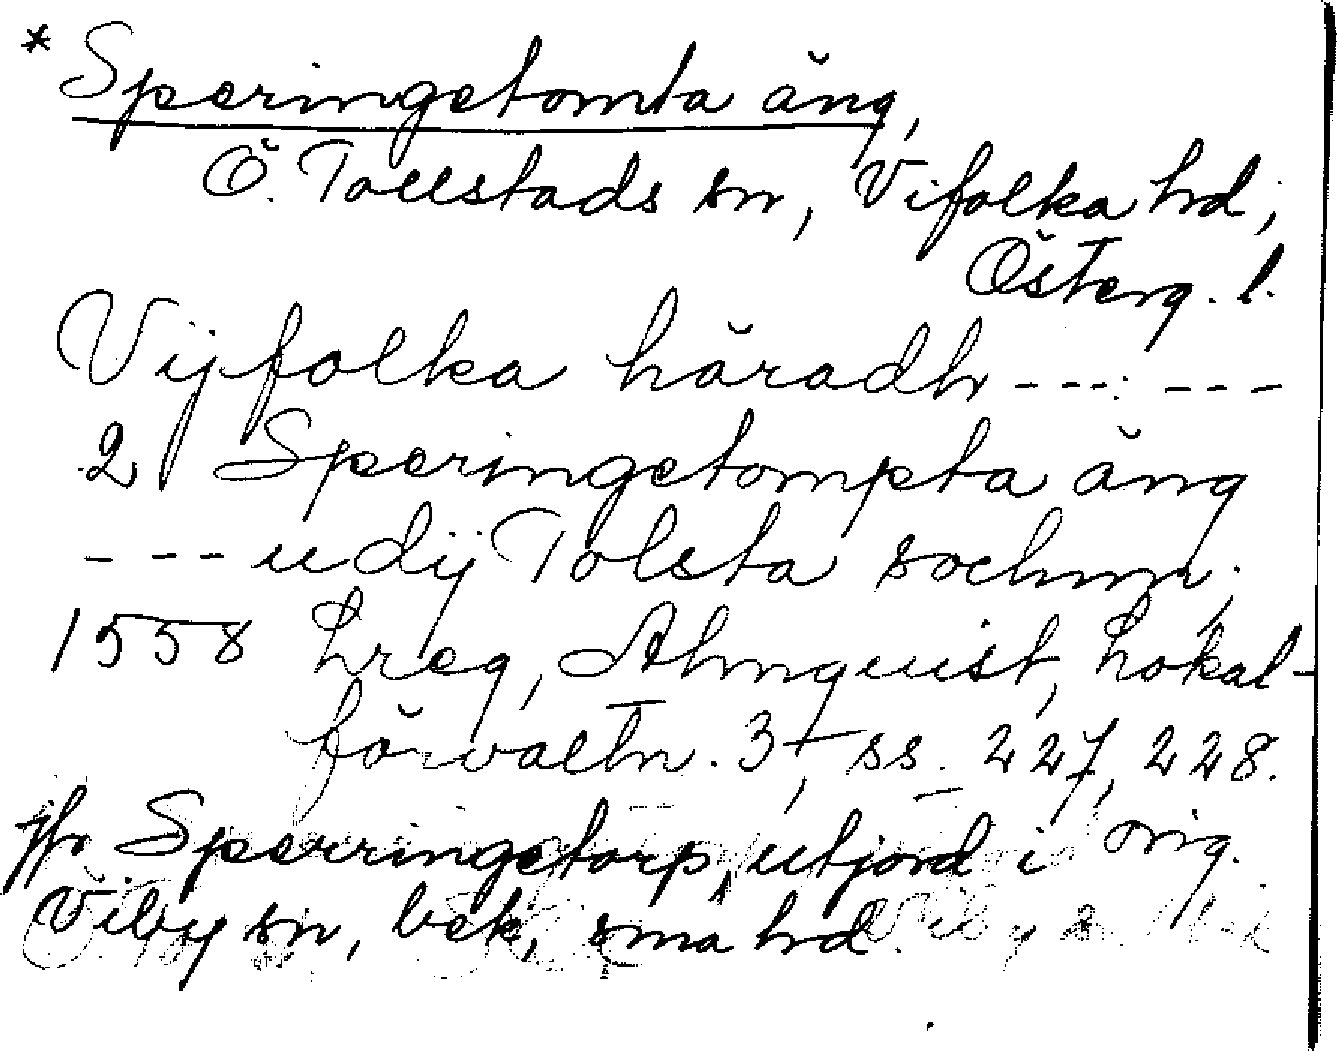 * Speringetomta äng,
Ö. Tollstads sn, Vifolka hd,
Österg. l.
Vijfolka häradh --- ---
2 Speringetompta äng
--- udij Tolsta sochnn;
1558 Lreg, Almquist, Lokal-
förvaltn. 3, ss. 227, 228.
Jfr Sperringetorp, utjord i orig.
Viby sn, bek, sma hd.